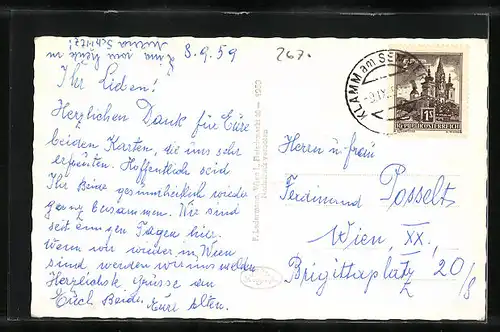 8.9.59
267.-
Ihr Lieben!
Herzlichen Dank für Eure
beiden Karten, die uns sehr
erfreuten. Hoffentlich seid
Ihr Beide gesundheitlich wieder
ganz beisammen. Wir sind
seit einigen Tagen hier.
Wenn wir wieder in Wien
sind werden wir uns melden
Herzlichste Grüsse an
Euch Beide Eure Alten.
KLAMM am SEM
REPUBLIK ÖSTERREICH
Herrn u. frau
Ferdinand Posselt
Wien, XX.,
Brigittaplatz 20/8